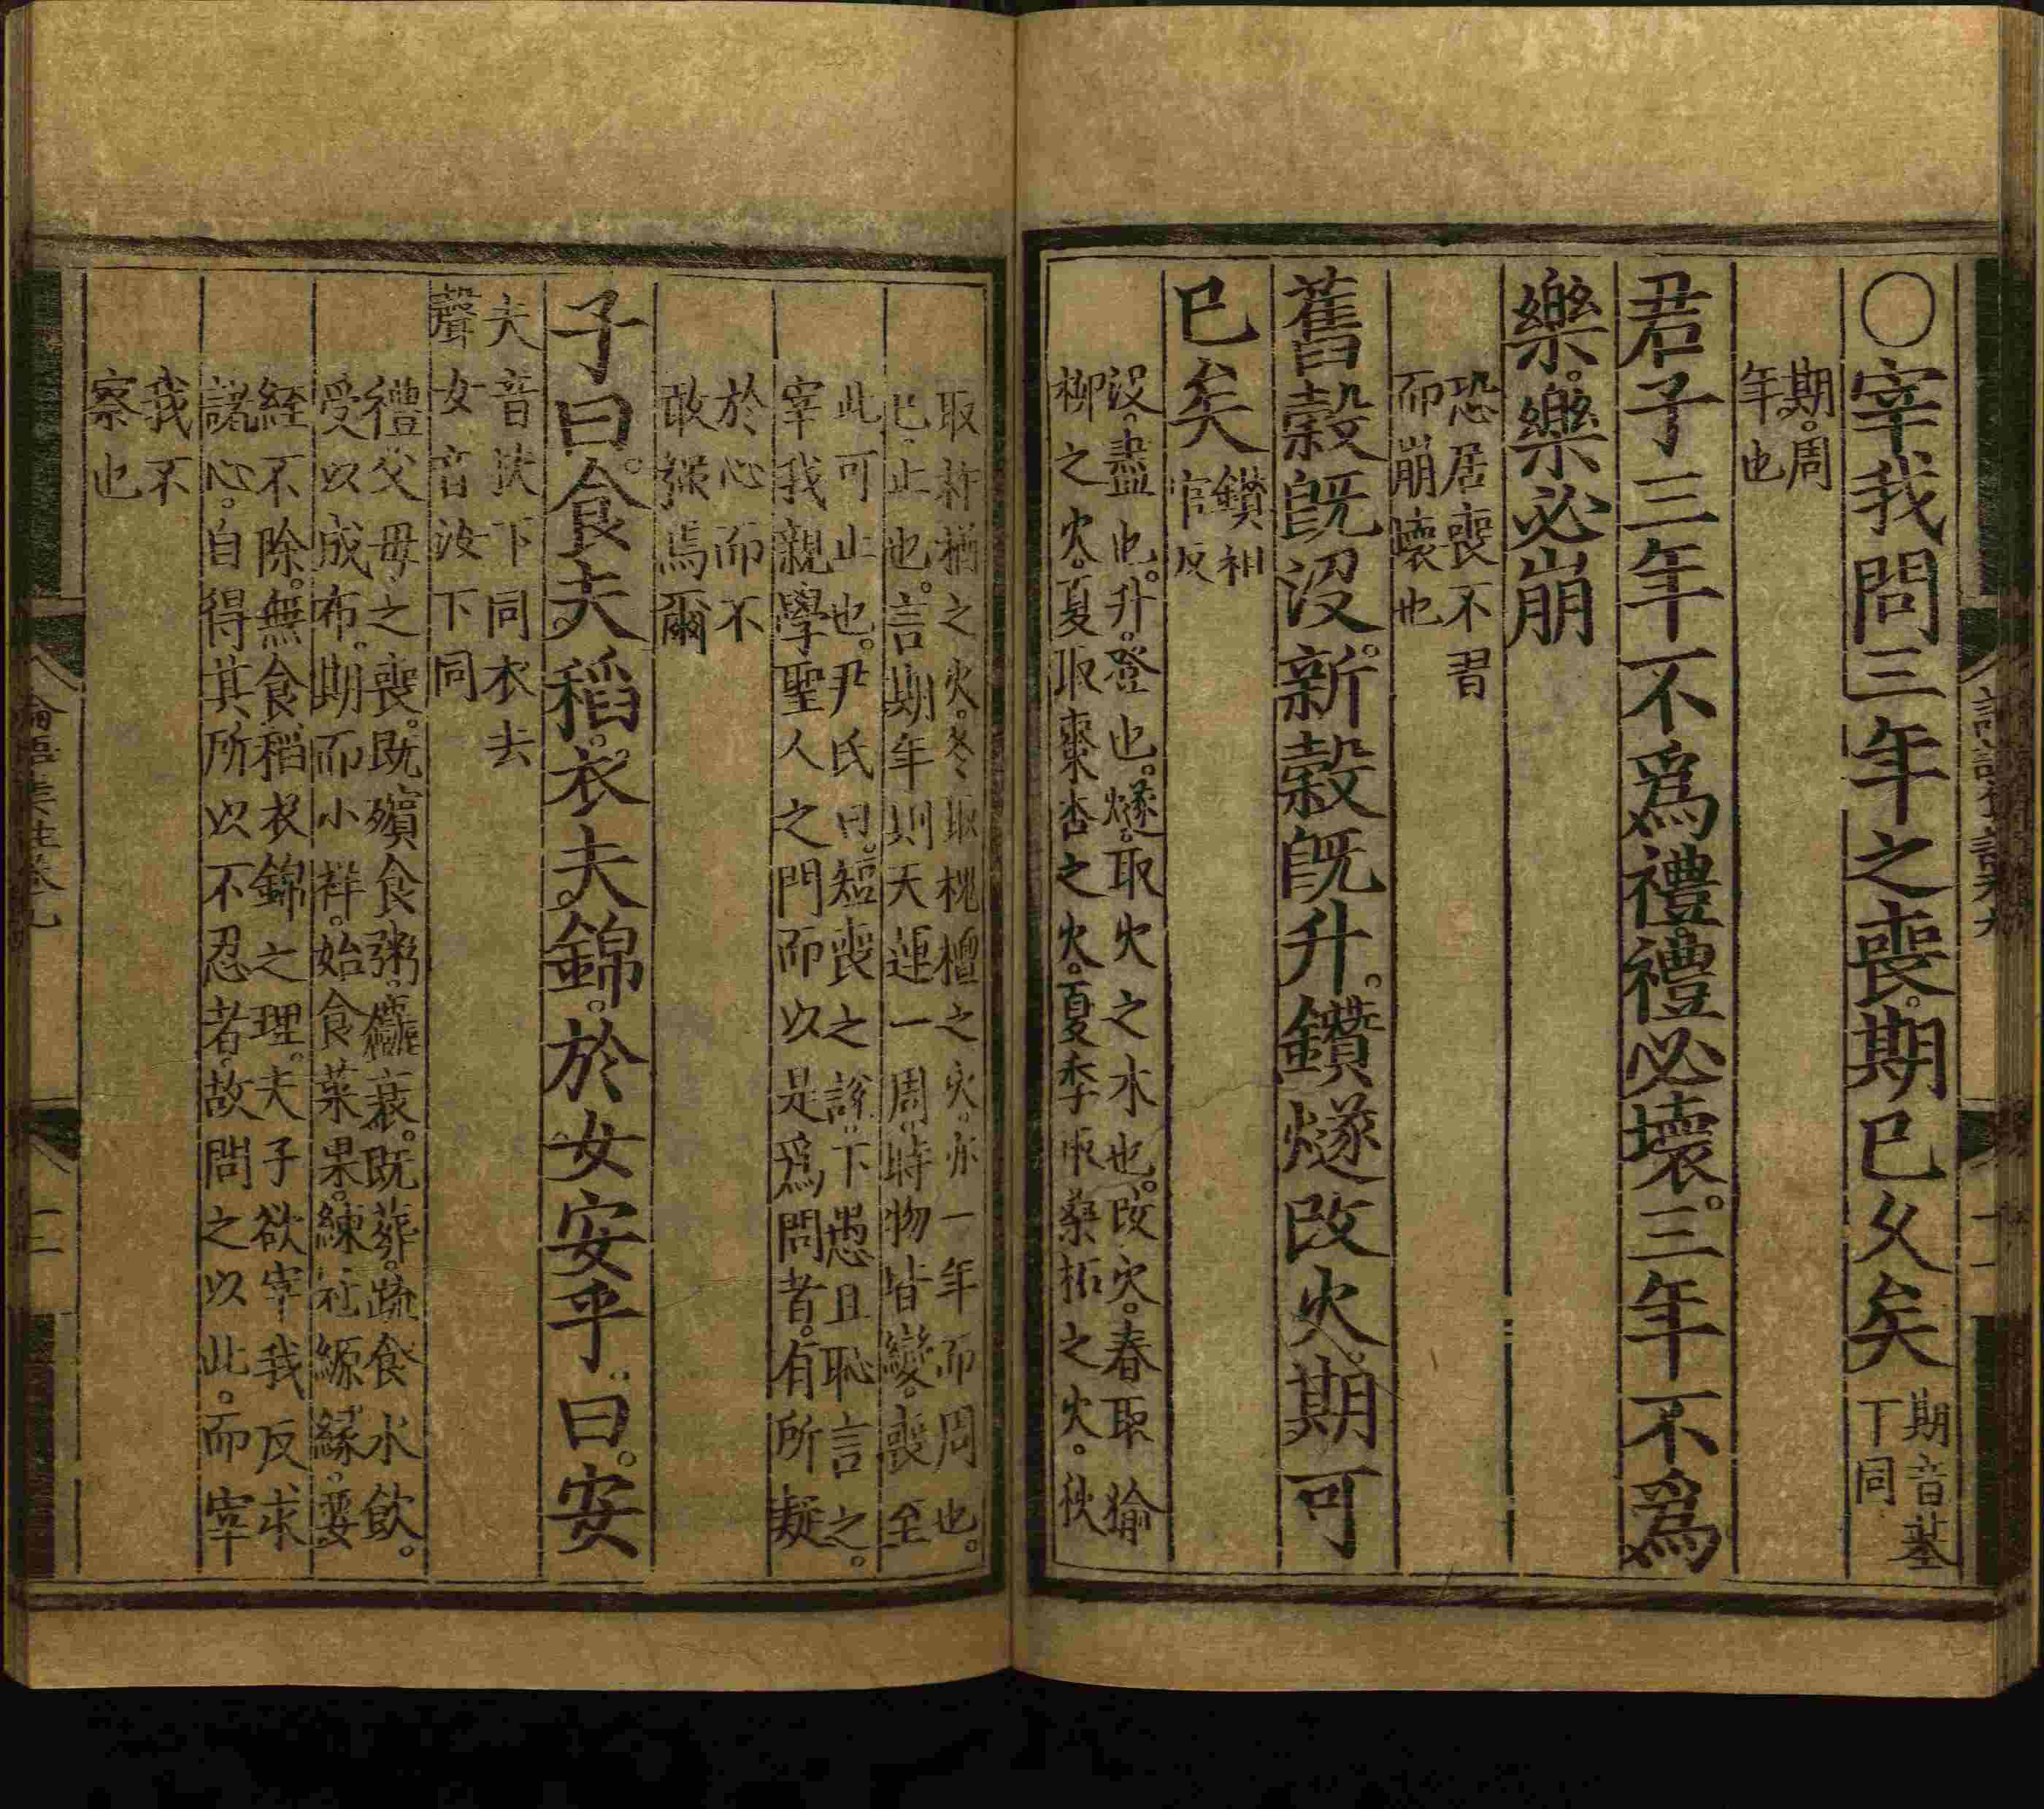 〇宰我問三年之喪。期已久矣
期音基
下同
期。周
年也
君子三年不爲禮。禮必壞。三年不爲
樂。樂必崩
恐居喪不習
而崩壞也
舊穀旣沒。新穀旣升。鑽燧改火。期可
已矣
鑽祖
官反
沒。盡也。升。登也。燧。取火之木也。改火。春取榆
柳之火。夏取棗杏之火。夏季取桑柘之火。秋
取柞楢之火。冬取槐檀之火。亦一年而周也。
已。止也。言期年則天運一周。時物皆變。喪至
此可止也。尹氏曰。短喪之說。下愚且恥言之。
宰我親學聖人之門。而以是爲問者。有所疑
於心而不
敢强焉爾
子曰。食夫稻。衣夫錦。於女安乎。曰。安
夫音扶下同衣去
聲女音汝下同
禮父母之喪。旣殯食粥。麤衰。旣葬。疏食水飮。
受以成布。期而小祥。始食菜果。練冠縓緣。要
絰不除。無食稻衣錦之理。夫子欲宰我反求
諸心。自得其所以不忍者。故問之以此。而宰
我不
察也